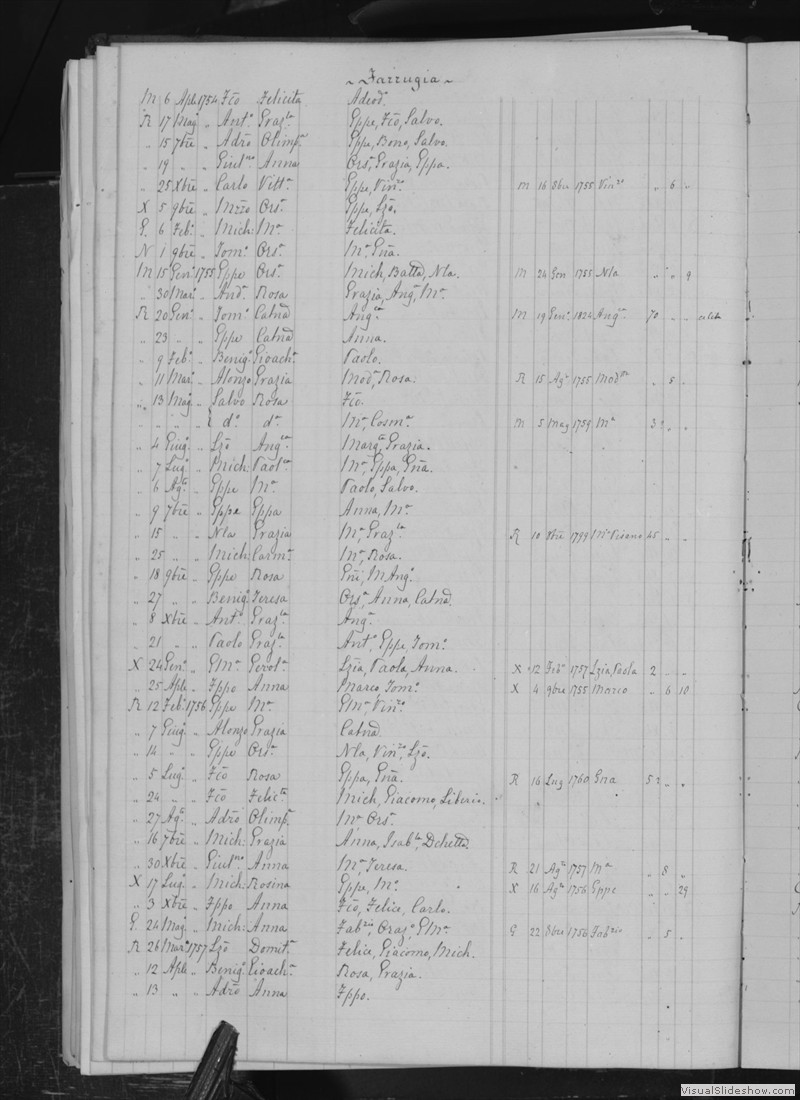 ~ Farrugia ~
M 6 Aple 1754 Fcō Felicita Adeod.
R 17 Magº " Antº Grazla Eppe, Fcō, Salvo.
" 15 7bre " Adrō Olimpa Eppe, Bono, Salvo.
" 19 " " Giulno Anna Orsa, Grazia, Eppa.
" 25 Xbre " Carlo Vitta Eppe, Vinzo M 16 8bre 1755 Vinzo " 6 "
X 5 9bre " Mzzo Orsa Eppe, Lzō.
G 6 Feb: " Mich: Ma Felicita.
N 1 9bre " Tomº Orsa Ma, Gña.
M 15 Genº 1755 Eppe Orsa Mich, Battā, Nla. M 24 Gen 1755 Nla " " 9
" 30 Marº " And: Rosa Grazia, Angº, Ma
R 20 Genº " Tomº Catnā Angca M 19 Genº 1824 Angca 70 " "
" 23 " " Eppe Catnā Anna.
" 9 Feb: " Benigº Gioacha Paolo.
" 11 Marº " Alonzo Grazia Moda, Rosa. R 15 Agº 1755 " 5 "
" 13 Magº " Salvo Rosa Fcō.
" " " " dº da Ma, Cosmª M 5 Mag 1759 Ma
" 4 Giugº " Lzō Angca Marga, Grazia.
" 7 Lugº " Mich: Paolca Ma, Eppa, Gña.
" 6 Agº " Eppe Ma Paolo, Salvo.
" 9 7bre " Eppe Eppa Anna, Ma
" 15 " " Nla Grazia Ma, Grazla R 10 1799 45 " "
" 25 " " Mich: Carma Ma, Rosa.
" 18 9bre " Eppe Rosa Gñi, M Angº
" 27 " " Benigº Teresa Orsa, Anna, Catnā.
" 8 Xbre " Antº Grazla Angº
" 21 " " Paolo Grazla Antº, Eppe, Tomº
X 24 Genº " GMa Gerolª Lzia, Paola, Anna. X 12 Febº 1757 Lzia, Paola 2 " "
" 25 Aple " Fppo Anna Marco, Tomº X 4 9bre 1755 Marco " 6 10
R 12 Febº 1756 Eppe Ma GMa, Vinzo
" 7 Giugº " Alonzo Grazia Catnā.
" 14 " " Eppe Orsa Nla, Vinza, Lzō.
" 5 Lugº " Fcō Rosa Eppa, Gña. R 16 Lug 1760 Gna " "
" 24 " " Fcō Felicta Mich, Giacomo, Liberio.
" 27 Agº " Adrō Olimpa Ma Orsa
" 16 7bre " Mich: Grazia Anna, Isabla,
" 30 Xbre " Giulno Anna Ma, Teresa. R 21 Agº 1757 Ma " 8 "
X 17 Lugº " Mich: Rosina Eppe, Ma X 16 Agº 1756 Eppe " " 29
" 3 Xbre " Fppo Anna Fcō, Felice, Carlo.
G 24 Magº " Mich: Anna Fabzio, Orazº, GMa G 22 8bre 1756 Fabzio " 5 "
R 26 Marº 1757 Lzō Domita Felice, Giacomo, Mich.
" 12 Aple " Benigº Gioacha Rosa, Grazia.
" 13 " " Adrō Anna Fppo.
VisualSlideshow.com